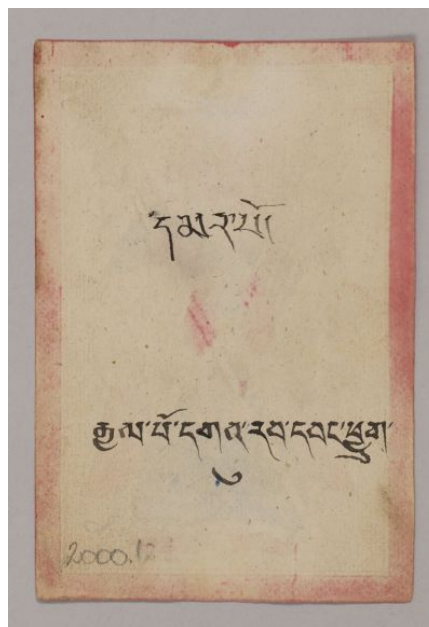 དམར་པོ།
རྒྱལ་པོ་དགའ་རབ་དབང་ཕྱུག་
2000.12